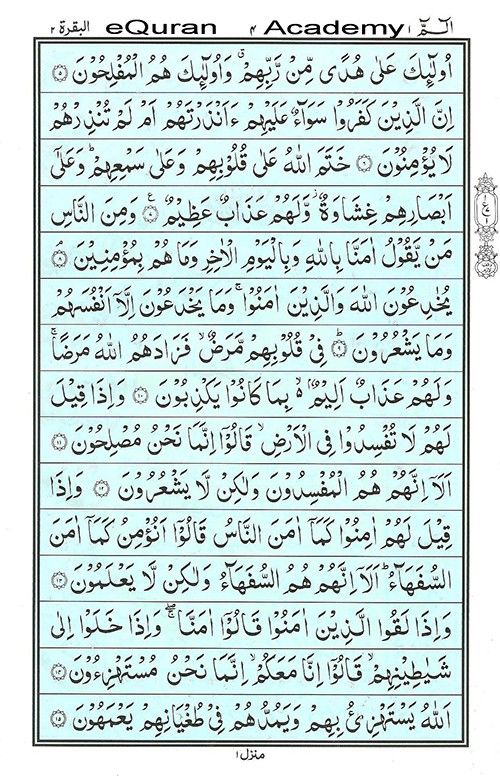 الٓمّٓ ١ eQuran ٤ Academy البقرة ٢
اُولٰٓئِكَ عَلٰى هُدًى مِّنْ رَّبِّهِمْ ۗ وَاُولٰٓئِكَ هُمُ الْمُفْلِحُوْنَ ۝٥
اِنَّ الَّذِيْنَ كَفَرُوْا سَوَآءٌ عَلَيْهِمْ ءَاَنْذَرْتَهُمْ اَمْ لَمْ تُنْذِرْهُمْ
لَا يُؤْمِنُوْنَ ۝٦ خَتَمَ اللّٰهُ عَلٰى قُلُوْبِهِمْ وَعَلٰى سَمْعِهِمْ ؕ وَعَلٰٓى
اَبْصَارِهِمْ غِشَاوَةٌ ؗ وَّلَهُمْ عَذَابٌ عَظِيْمٌ ۝٧ ع وَمِنَ النَّاسِ
مَنْ يَّقُوْلُ اٰمَنَّا بِاللّٰهِ وَبِالْيَوْمِ الْاٰخِرِ وَمَا هُمْ بِمُؤْمِنِيْنَ ۝٨ۘ
يُخٰدِعُوْنَ اللّٰهَ وَالَّذِيْنَ اٰمَنُوْا ۚ وَمَا يَخْدَعُوْنَ اِلَّآ اَنْفُسَهُمْ
وَمَا يَشْعُرُوْنَ ۝٩ؕ فِيْ قُلُوْبِهِمْ مَّرَضٌ ۙ فَزَادَهُمُ اللّٰهُ مَرَضًا ۚ
وَلَهُمْ عَذَابٌ اَلِيْمٌ ۢ ۙ بِمَا كَانُوْا يَكْذِبُوْنَ ۝١٠ وَاِذَا قِيْلَ
لَهُمْ لَا تُفْسِدُوْا فِى الْاَرْضِ ۙ قَالُوْٓا اِنَّمَا نَحْنُ مُصْلِحُوْنَ ۝١١
اَلَآ اِنَّهُمْ هُمُ الْمُفْسِدُوْنَ وَلٰكِنْ لَّا يَشْعُرُوْنَ ۝١٢ وَاِذَا
قِيْلَ لَهُمْ اٰمِنُوْا كَمَآ اٰمَنَ النَّاسُ قَالُوْٓا اَنُؤْمِنُ كَمَآ اٰمَنَ
السُّفَهَآءُ ؕ اَلَآ اِنَّهُمْ هُمُ السُّفَهَآءُ وَلٰكِنْ لَّا يَعْلَمُوْنَ ۝١٣
وَاِذَا لَقُوا الَّذِيْنَ اٰمَنُوْا قَالُوْٓا اٰمَنَّا ۖۚ وَاِذَا خَلَوْا اِلٰى
شَيٰطِيْنِهِمْ ۙ قَالُوْٓا اِنَّا مَعَكُمْ ۙ اِنَّمَا نَحْنُ مُسْتَهْزِءُوْنَ ۝١٤
اَللّٰهُ يَسْتَهْزِئُ بِهِمْ وَيَمُدُّهُمْ فِيْ طُغْيَانِهِمْ يَعْمَهُوْنَ ۝١٥
منزل ١